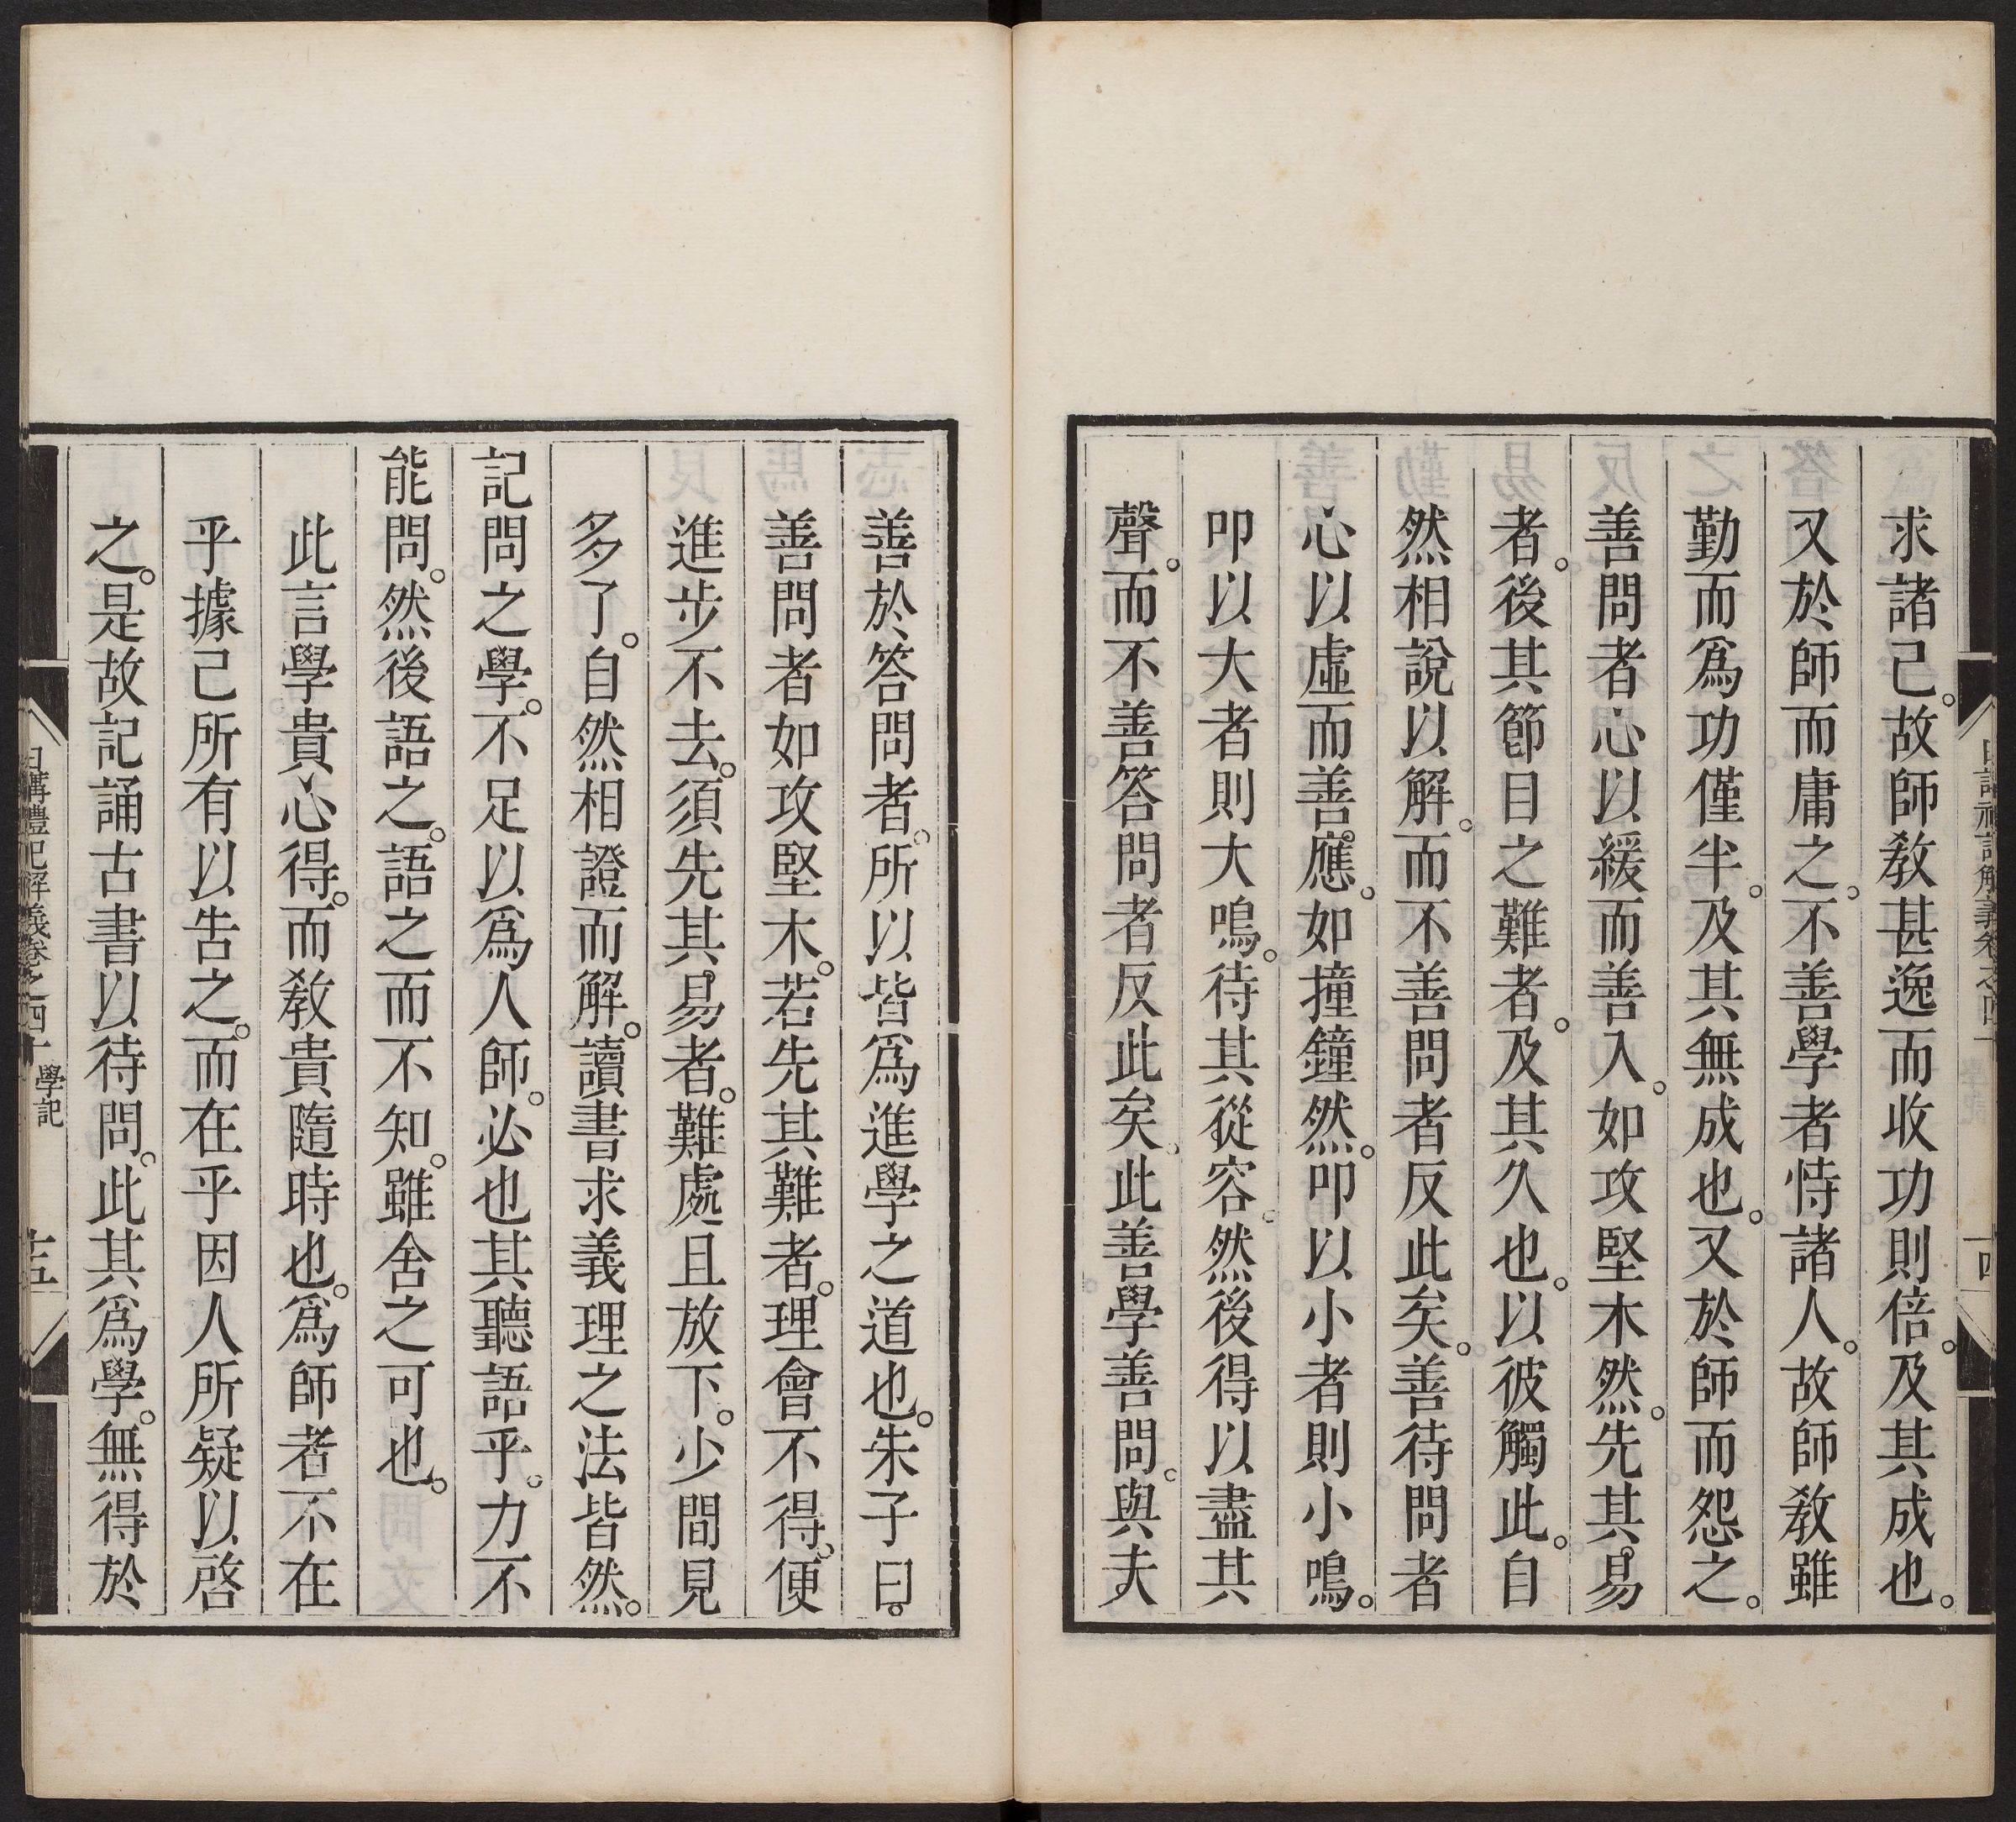 求諸己。故師教甚逸而收功則倍。及其成也。
又於師而庸之。不善學者恃諸人。故師教雖
勤而爲功僅半。及其無成也。又於師而怨之。
善問者心以緩而善入。如攻堅木然。先其易
者。後其節目之難者。及其久也。以彼觸此。自
然相說以解。而不善問者反此矣。善待問者
心以虛而善應。如撞鐘然。叩以小者則小鳴。
叩以大者則大鳴。待其從容。然後得以盡其
聲。而不善答問者反此矣。此善學善問。與夫
善於答問者。所以皆爲進學之道也。朱子曰。
善問者如攻堅木。若先其難者。理會不得。便
進步不去。須先其易者。難處且放下。少間見
多了。自然相證而解。讀書求義理之法皆然。
記問之學。不足以爲人師。必也其聽語乎。力不
能問。然後語之。語之而不知。雖舍之可也。
此言學貴心得。而教貴隨時也。爲師者不在
乎據己所有以告之。而在乎因人所疑以啓
之。是故記誦古書以待問。此其爲學。無得於
日講禮記解義卷之四十 學記 十五